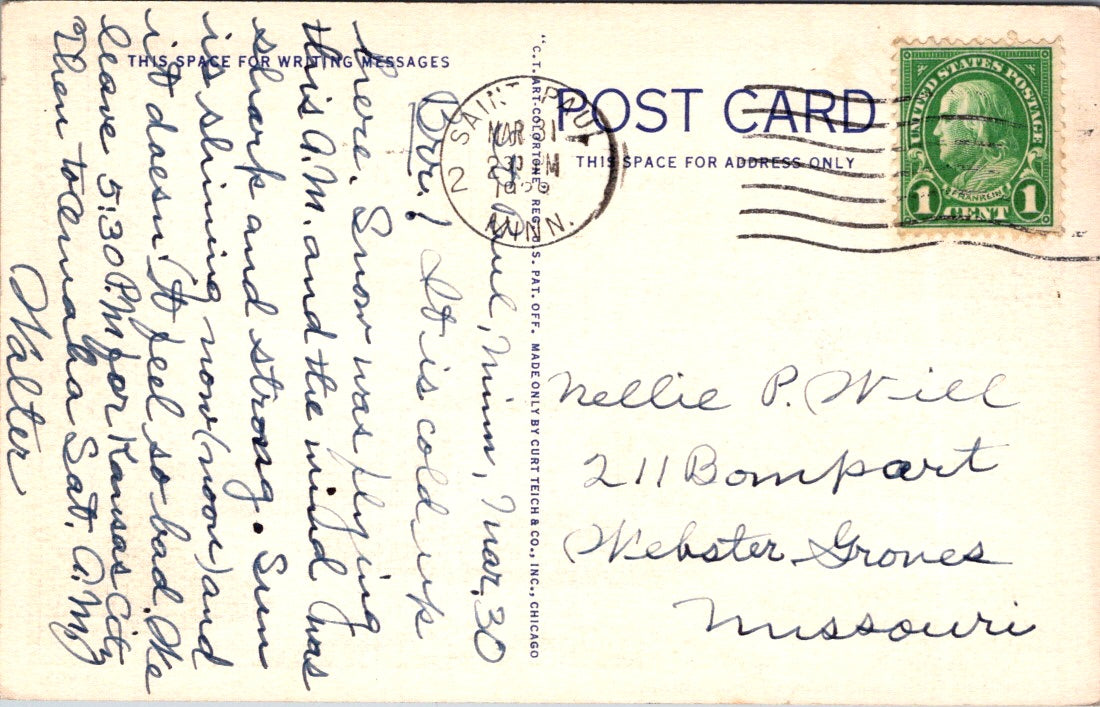 THIS SPACE FOR WRITING MESSAGES
POST CARD
THIS SPACE FOR ADDRESS ONLY
"C.T. ART-COLORTONE" REG. U.S. PAT. OFF. MADE ONLY BY CURT TEICH & CO., INC., CHICAGO
SAINT PAUL
MAR 31
2 PM
MINN.
2
UNITED STATES POSTAGE
FRANKLIN
1 CENT 1
Paul, Minn, Mar. 30
Brr! It is cold up
here. Snow was flying
this A.M. and the wind was
sharp and strong. Sun
is shining now (noon) and
it doesn't feel so bad. We
leave 5:30 P.M for Kansas City
Then to Omaha Sat. A.M
Walter
Nellie P. Will
211 Bompart
Webster Groves
Missouri